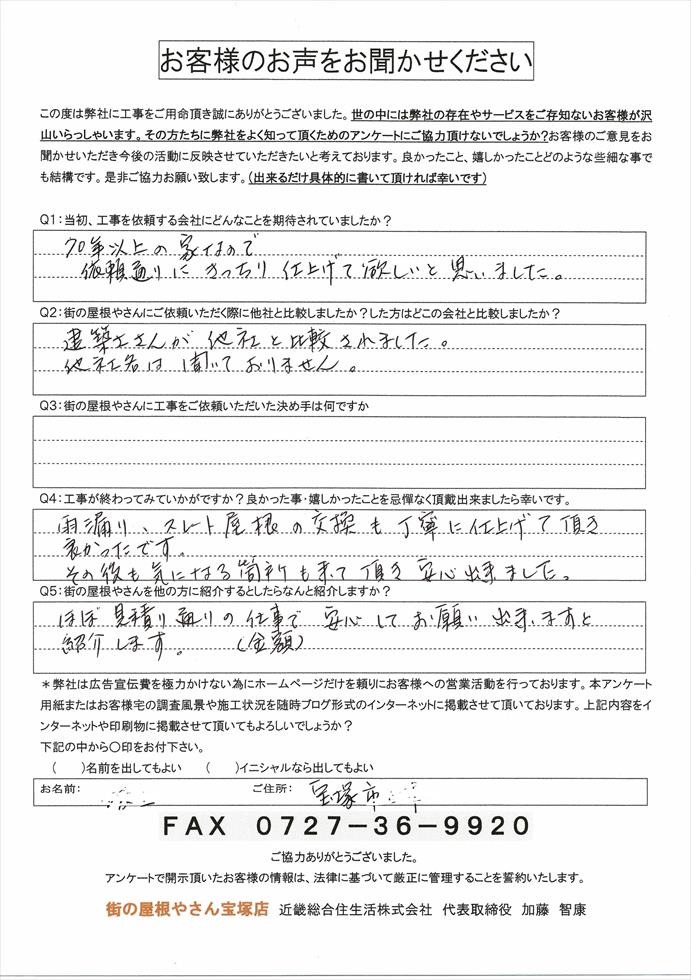 お客様のお声をお聞かせください
この度は弊社に工事をご用命頂き誠にありがとうございました。世の中には弊社の存在やサービスをご存知ないお客様が沢
山いらっしゃいます。その方たちに弊社をよく知って頂くためのアンケートにご協力頂けないでしょうか?お客様のご意見をお
聞かせいただき今後の活動に反映させていただきたいと考えております。良かったこと、嬉しかったことどのような些細な事で
も結構です。是非ご協力お願い致します。(出来るだけ具体的に書いて頂ければ幸いです)
Q1:当初、工事を依頼する会社にどんなことを期待されていましたか?
70年以上の家なので
依頼通りにきっちり仕上げて欲しいと思いました。
Q2:街の屋根やさんにご依頼いただく際に他社と比較しましたか?した方はどこの会社と比較しましたか?
建築士さんが他社と比較されました。
他社名は聞いておりません。
Q3:街の屋根やさんに工事をご依頼いただいた決め手は何ですか
Q4:工事が終わってみていかがですか?良かった事・嬉しかったことを忌憚なく頂戴出来ましたら幸いです。
雨漏り、スレート屋根の交換も丁寧に仕上げて頂き
良かったです。
その後も気になる箇所も来て頂き安心出来ました。
Q5:街の屋根やさんを他の方に紹介するとしたらなんと紹介しますか?
ほぼ見積り通りの仕事で安心してお願い出来ますと
紹介します。 (金額)
*弊社は広告宣伝費を極力かけない為にホームページだけを頼りにお客様への営業活動を行っております。本アンケート
用紙またはお客様宅の調査風景や施工状況を随時ブログ形式のインターネットに掲載させて頂いております。上記内容をイ
ンターネットや印刷物に掲載させて頂いてもよろしいでしょうか?
下記の中から〇印をお付下さい。
( )名前を出してもよい ( )イニシャルなら出してもよい
お名前: ご住所: 宝塚市
FAX 0727-36-9920
ご協力ありがとうございました。
アンケートで開示頂いたお客様の情報は、法律に基づいて厳正に管理することを誓約いたします。
街の屋根やさん宝塚店 近畿総合住生活株式会社 代表取締役 加藤 智康